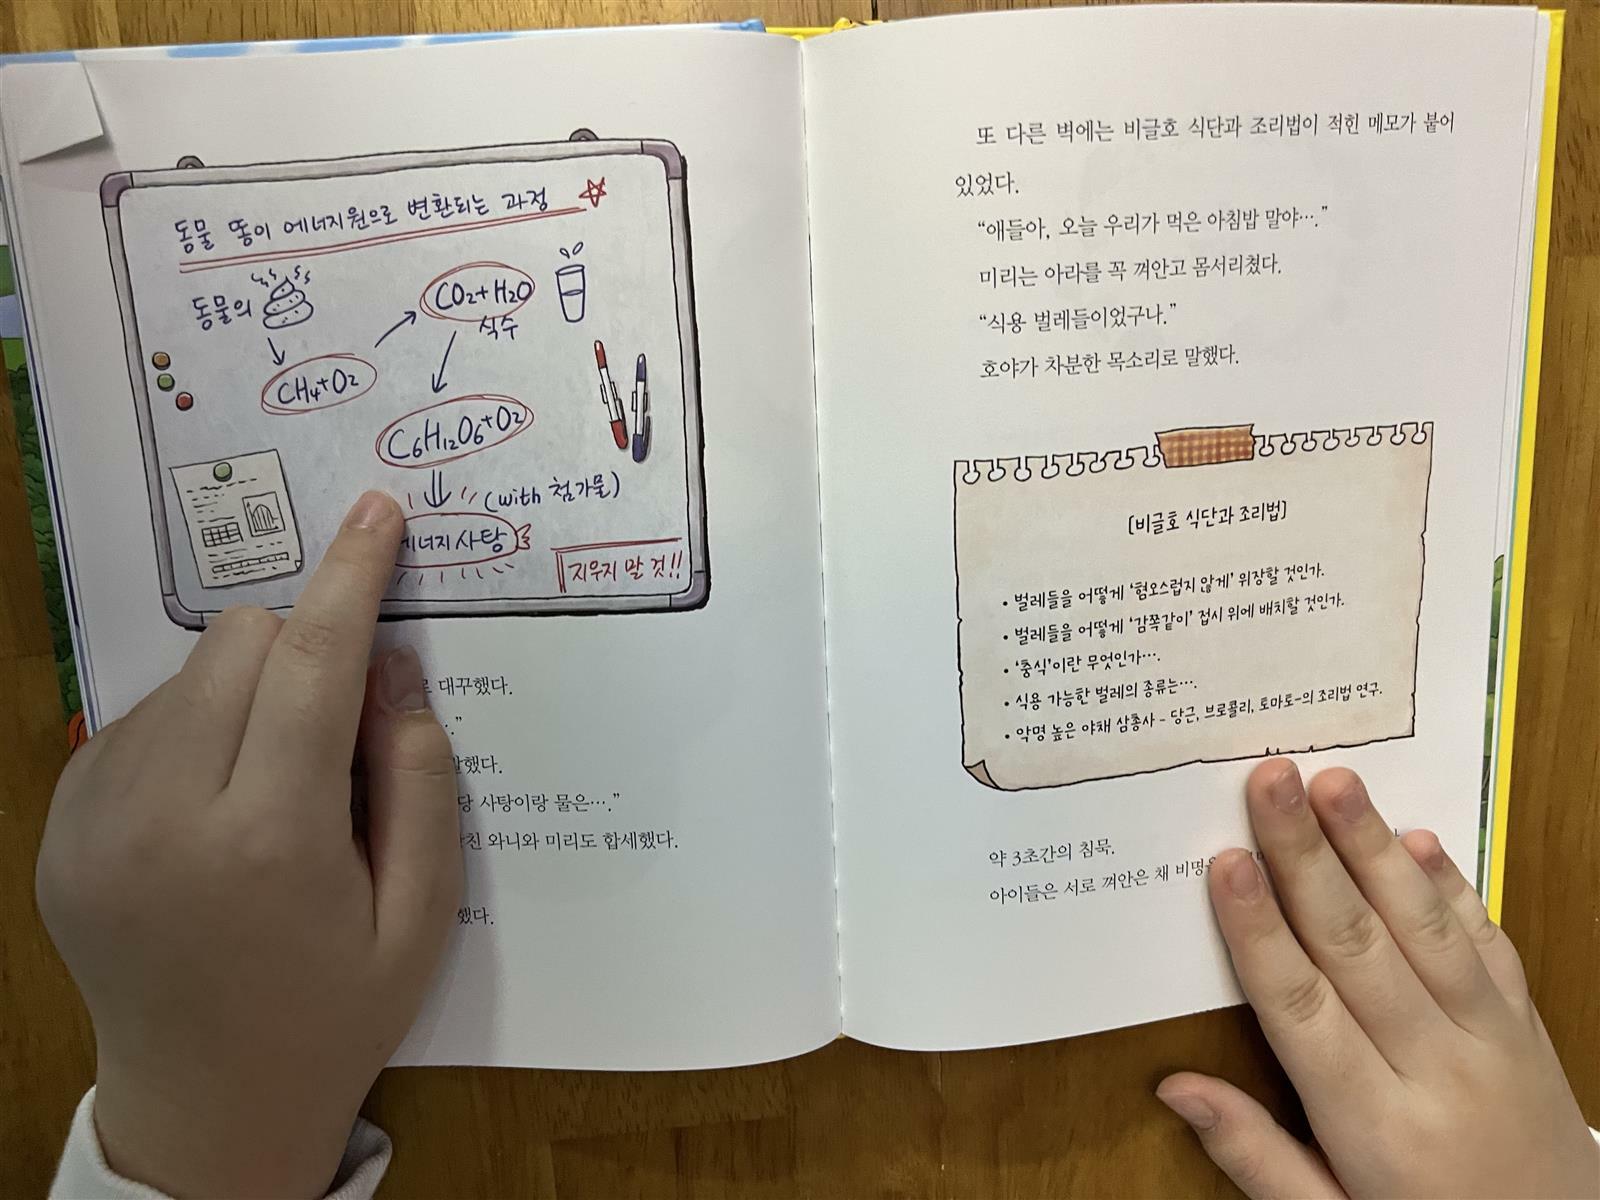 동물 똥이 에너지원으로 변환되는 과정
동물의
CH₄+O₂
CO₂+H₂O
식수
C₆H₁₂O₆+O₂
(with 첨가물)
에너지 사탕
지우지 말 것!!
로 대꾸했다.
”
말했다.
당 사탕이랑 물은….”
친 와니와 미리도 합세했다.
했다.
또 다른 벽에는 비글호 식단과 조리법이 적힌 메모가 붙어
있었다.
“얘들아, 오늘 우리가 먹은 아침밥 말야….”
미리는 아라를 꼭 껴안고 몸서리쳤다.
“식용 벌레들이었구나.”
호야가 차분한 목소리로 말했다.
[비글호 식단과 조리법]
• 벌레들을 어떻게 ‘혐오스럽지 않게’ 위장할 것인가.
• 벌레들을 어떻게 ‘감쪽같이’ 접시 위에 배치할 것인가.
• ‘충식’이란 무엇인가….
• 식용 가능한 벌레의 종류는….
• 악명 높은 야채 삼총사 - 당근, 브로콜리, 토마토-의 조리법 연구.
약 3초간의 침묵.
아이들은 서로 껴안은 채 비명